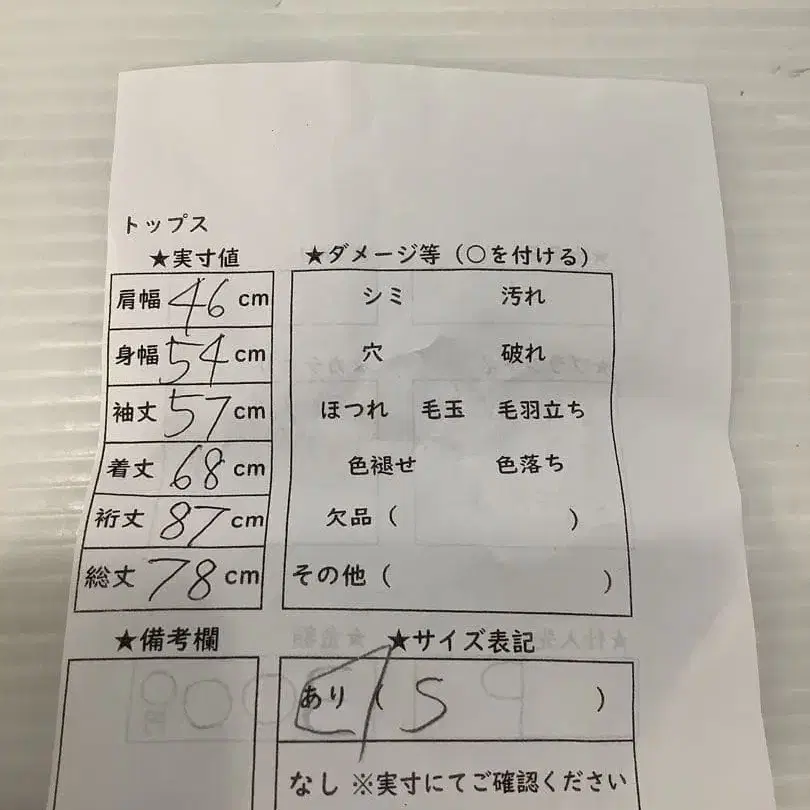 トップス
★実寸値
肩幅 46 cm
身幅 54 cm
袖丈 57 cm
着丈 68 cm
裄丈 87 cm
総丈 78 cm
★ダメージ等（○を付ける）
シミ 汚れ
穴 破れ
ほつれ 毛玉 毛羽立ち
色褪せ 色落ち
欠品（ ）
その他（ ）
★備考欄
★サイズ表記
あり（ S ）
なし ※実寸にてご確認ください